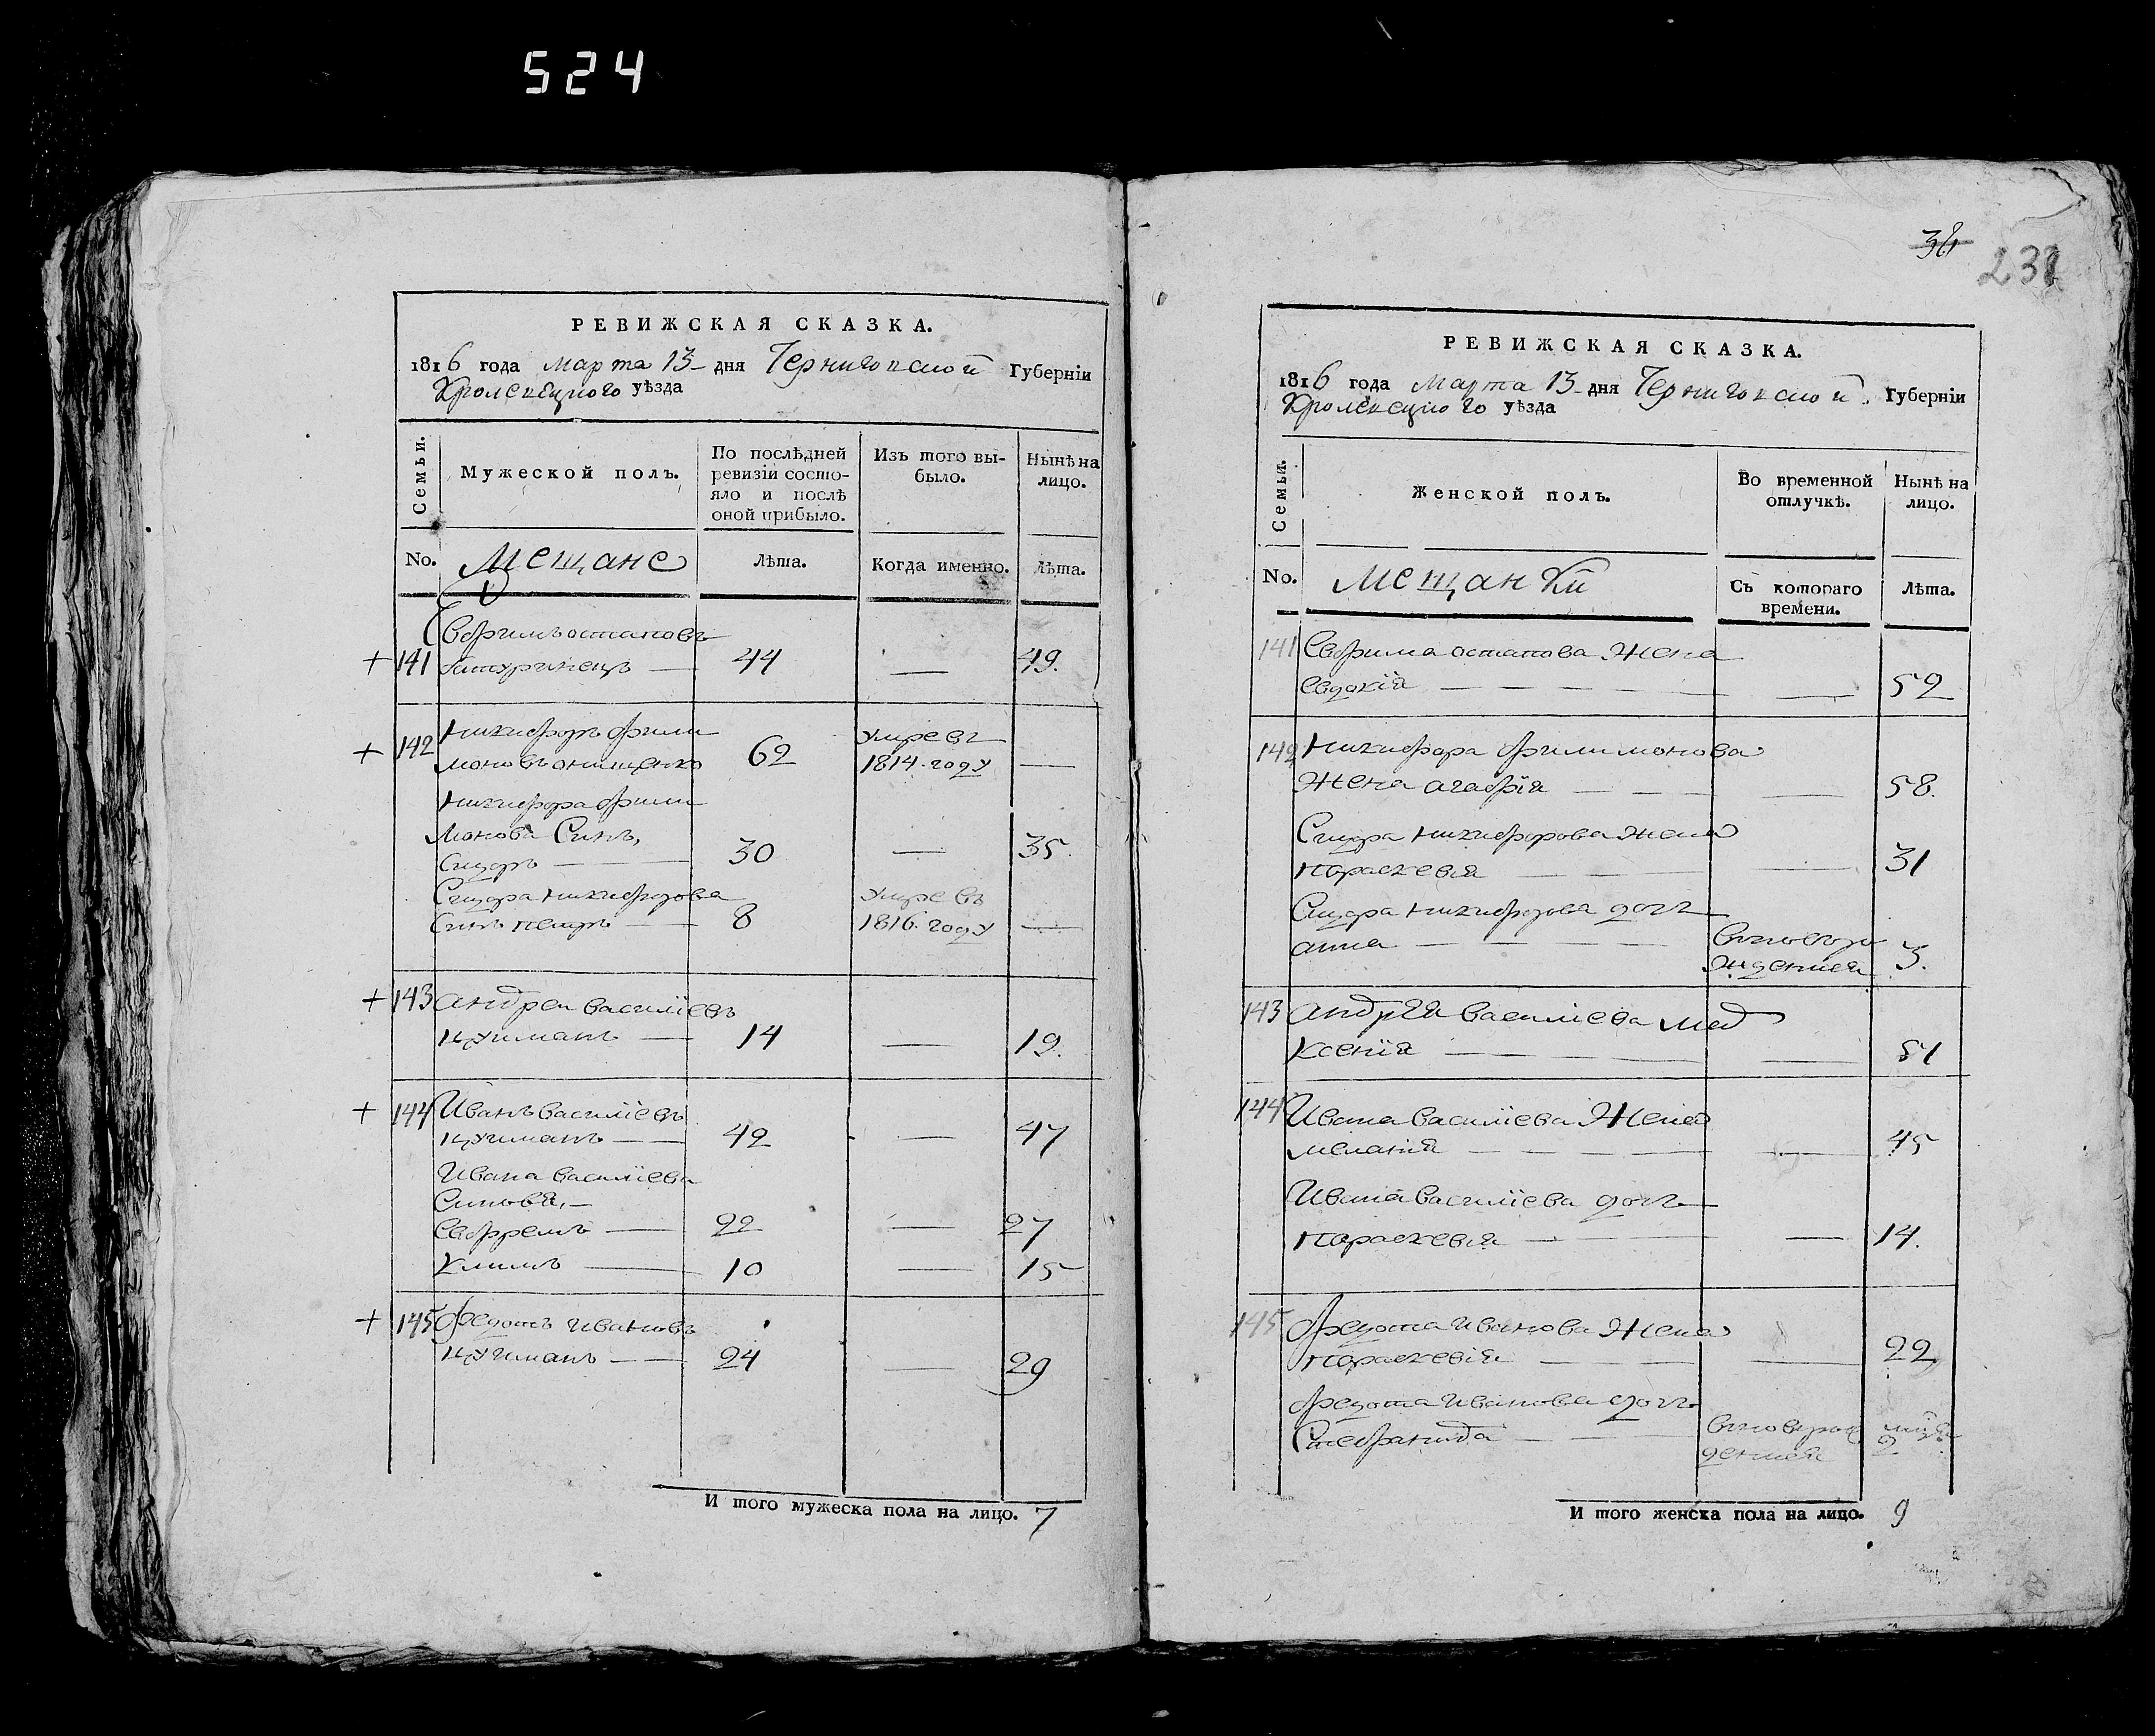 524
РЕВИЖСКАЯ СКАЗКА.
1816 года марта 13 дня Черниговской Губерніи
Кролевецкого уѣзда
Семьи.
Мужеской полъ.
По послѣдней ревизіи состо-
яло и послѣ
оной прибыло.
Изъ того вы-
было.
Нынѣ на
лицо.
No. Мещане Лѣта. Когда именно. Лѣта.
Евфимъ остаповъ
+ 141 батуринецъ — 44 — 49.
+ 142 Никифоръ фили
моновъ онищенко 62 умре въ 1814. году —
Никифора фили
монова Синъ,
Сидоръ — 30 — 35.
Сидора никифорова
Синъ петръ — 8 умре въ 1816. году —
+ 143 андреи василіевъ
— 14 — 19.
+ 144 Иванъ василіевъ
— 42 — 47
Ивана василіева
Синовя, —
Ефремъ — 22 — 27
Климъ — 10 — 15
+ 145 федотъ ивановъ
— 24 — 29
И того мужеска пола на лицо. 7
231
РЕВИЖСКАЯ СКАЗКА.
1816 года марта 13 дня Черниговской Губерніи
Кролевецкого уѣзда
Семьи.
Женской полъ.
Во временной
отлучкѣ.
Нынѣ на
лицо.
No. Мещанки Съ котораго
времени. Лѣта.
141 Евфима остапова Жена
евдокія — — 52
142 Никифора филимонова
Жена агафія — — 58.
Сидора никифорова жена
параскевія — — 31
Сидора никифорова дочъ
анна — 3.
143 андрея василіева мат
Ксенія — — 51
144 Ивана василіева Жена
меланія — — 45
Ивана василіева дочъ
параскевія — — 14.
145 федота иванова Жена
параскевія — — 22
федота иванова дочъ
Стефанида — 2
И того женска пола на лицо. 9